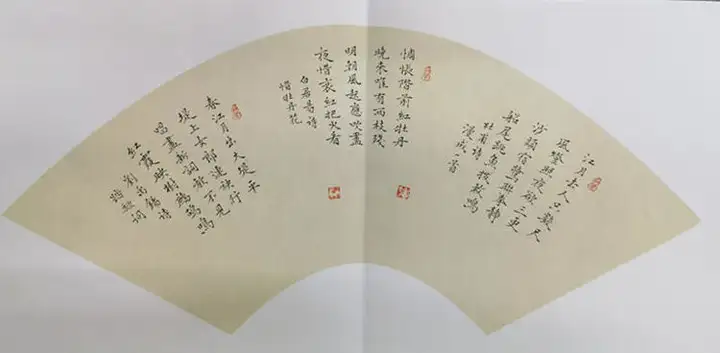 江月去人只數尺
風燈照夜欲三更
沙頭宿鷺聯拳靜
船尾跳魚撥剌鳴
杜甫詩
漫成一首
惆悵階前紅牡丹
晚來唯有兩枝殘
明朝風起應吹盡
夜惜衰紅把火看
白居易詩
惜牡丹花
春江月出大堤平
堤上女郎連袂行
唱盡新詞歡不見
紅霞映樹鷓鴣鳴
劉禹錫詩
踏歌詞